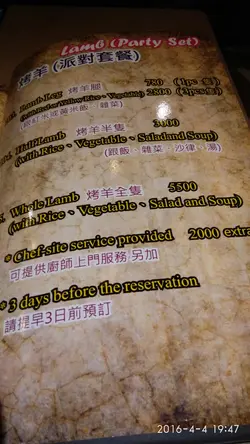 Lamb (Party Set)
烤羊 (派對套餐)
Lamb Leg 烤羊腿 780 (1pc 隻)
Yellow Rice、Vegetable) 2800 (3pcs隻)
飯、雜菜)
Half Lamb 烤羊半隻
(with Rice、Vegetable、Salad and Soup)
(跟飯、雜菜、沙律、湯)
Whole Lamb 烤羊全隻 5500
(with Rice、Vegetable、Salad and Soup)
* Chef-site service provided 2000 extra
可提供廚師上門服務 另加
* 3 days before the reservation
請提早3日前預訂
2016-4-4 19:47